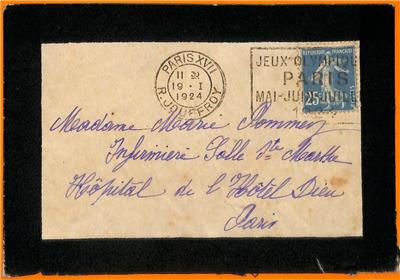 PARIS XVII
11 H
19 - I
1924
R. JOUFFROY
JEUX OLYMPIQU
PARIS
MAI-JUIN-JUILLE
RÉPUBLIQUE FRANÇAISE
25c
Madame Marie
Infirmière Salle Ste Marthe
Hôpital de l'Hôtel Dieu
Paris